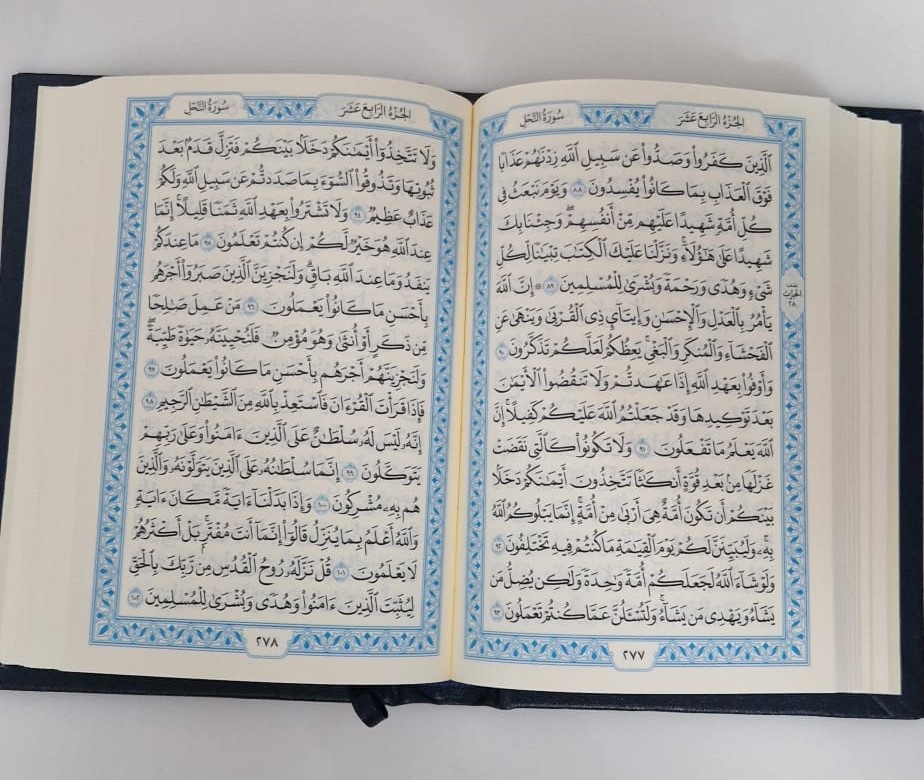 سُورَةُ النَّحْلِ
الجُزْءُ الرَّابِعَ عَشَرَ
الَّذِينَ كَفَرُوا۟ وَصَدُّوا۟ عَن سَبِيلِ اللَّهِ زِدْنَٰهُمْ عَذَابًا
فَوْقَ الْعَذَابِ بِمَا كَانُوا۟ يُفْسِدُونَ ٨٨ وَيَوْمَ نَبْعَثُ فِى
كُلِّ أُمَّةٍ شَهِيدًا عَلَيْهِم مِّنْ أَنفُسِهِمْ ۖ وَجِئْنَا بِكَ
شَهِيدًا عَلَىٰ هَٰٓؤُلَآءِ ۚ وَنَزَّلْنَا عَلَيْكَ الْكِتَٰبَ تِبْيَٰنًا لِّكُلِّ
شَىْءٍ وَهُدًى وَرَحْمَةً وَبُشْرَىٰ لِلْمُسْلِمِينَ ٨٩ ۞ إِنَّ اللَّهَ
يَأْمُرُ بِالْعَدْلِ وَالْإِحْسَٰنِ وَإِيتَآئِ ذِى الْقُرْبَىٰ وَيَنْهَىٰ عَنِ
الْفَحْشَآءِ وَالْمُنكَرِ وَالْبَغْىِ ۚ يَعِظُكُمْ لَعَلَّكُمْ تَذَكَّرُونَ ٩٠
وَأَوْفُوا۟ بِعَهْدِ اللَّهِ إِذَا عَٰهَدتُّمْ وَلَا تَنقُضُوا۟ الْأَيْمَٰنَ
بَعْدَ تَوْكِيدِهَا وَقَدْ جَعَلْتُمُ اللَّهَ عَلَيْكُمْ كَفِيلًا ۚ إِنَّ
اللَّهَ يَعْلَمُ مَا تَفْعَلُونَ ٩١ وَلَا تَكُونُوا۟ كَالَّتِى نَقَضَتْ
غَزْلَهَا مِنۢ بَعْدِ قُوَّةٍ أَنكَٰثًا تَتَّخِذُونَ أَيْمَٰنَكُمْ دَخَلًۢا
بَيْنَكُمْ أَن تَكُونَ أُمَّةٌ هِىَ أَرْبَىٰ مِنْ أُمَّةٍ ۚ إِنَّمَا يَبْلُوكُمُ اللَّهُ
بِهِۦ ۚ وَلَيُبَيِّنَنَّ لَكُمْ يَوْمَ الْقِيَٰمَةِ مَا كُنتُمْ فِيهِ تَخْتَلِفُونَ ٩٢
وَلَوْ شَآءَ اللَّهُ لَجَعَلَكُمْ أُمَّةً وَٰحِدَةً وَلَٰكِن يُضِلُّ مَن
يَشَآءُ وَيَهْدِى مَن يَشَآءُ ۚ وَلَتُسْـَٔلُنَّ عَمَّا كُنتُمْ تَعْمَلُونَ ٩٣
نصف
الحزب
٢٨
٢٧٧
سُورَةُ النَّحْلِ
الجُزْءُ الرَّابِعَ عَشَرَ
وَلَا تَتَّخِذُوٓا۟ أَيْمَٰنَكُمْ دَخَلًۢا بَيْنَكُمْ فَتَزِلَّ قَدَمٌۢ بَعْدَ
ثُبُوتِهَا وَتَذُوقُوا۟ السُّوٓءَ بِمَا صَدَدتُّمْ عَن سَبِيلِ اللَّهِ وَلَكُمْ
عَذَابٌ عَظِيمٌ ٩٤ وَلَا تَشْتَرُوا۟ بِعَهْدِ اللَّهِ ثَمَنًا قَلِيلًا ۚ إِنَّمَا
عِندَ اللَّهِ هُوَ خَيْرٌ لَّكُمْ إِن كُنتُمْ تَعْلَمُونَ ٩٥ مَا عِندَكُمْ
يَنفَدُ وَمَا عِندَ اللَّهِ بَاقٍ ۗ وَلَنَجْزِيَنَّ الَّذِينَ صَبَرُوٓا۟ أَجْرَهُم
بِأَحْسَنِ مَا كَانُوا۟ يَعْمَلُونَ ٩٦ مَنْ عَمِلَ صَٰلِحًا
مِّن ذَكَرٍ أَوْ أُنثَىٰ وَهُوَ مُؤْمِنٌ فَلَنُحْيِيَنَّهُۥ حَيَوٰةً طَيِّبَةً ۖ
وَلَنَجْزِيَنَّهُمْ أَجْرَهُم بِأَحْسَنِ مَا كَانُوا۟ يَعْمَلُونَ ٩٧
فَإِذَا قَرَأْتَ الْقُرْءَانَ فَاسْتَعِذْ بِاللَّهِ مِنَ الشَّيْطَٰنِ الرَّجِيمِ ٩٨
إِنَّهُۥ لَيْسَ لَهُۥ سُلْطَٰنٌ عَلَى الَّذِينَ ءَامَنُوا۟ وَعَلَىٰ رَبِّهِمْ
يَتَوَكَّلُونَ ٩٩ إِنَّمَا سُلْطَٰنُهُۥ عَلَى الَّذِينَ يَتَوَلَّوْنَهُۥ وَالَّذِينَ
هُم بِهِۦ مُشْرِكُونَ ١٠٠ وَإِذَا بَدَّلْنَآ ءَايَةً مَّكَانَ ءَايَةٍ ۙ
وَاللَّهُ أَعْلَمُ بِمَا يُنَزِّلُ قَالُوٓا۟ إِنَّمَآ أَنتَ مُفْتَرٍۭ ۚ بَلْ أَكْثَرُهُمْ
لَا يَعْلَمُونَ ١٠١ قُلْ نَزَّلَهُۥ رُوحُ الْقُدُسِ مِن رَّبِّكَ بِالْحَقِّ
لِيُثَبِّتَ الَّذِينَ ءَامَنُوا۟ وَهُدًى وَبُشْرَىٰ لِلْمُسْلِمِينَ ١٠٢
٢٧٨